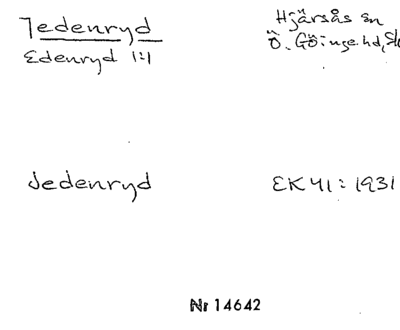 Jedenryd
Hjärsås sn
Edenryd 1:1
Ö. Göinge hd,
Jedenryd
EK 41 : 1931
Nr 14642